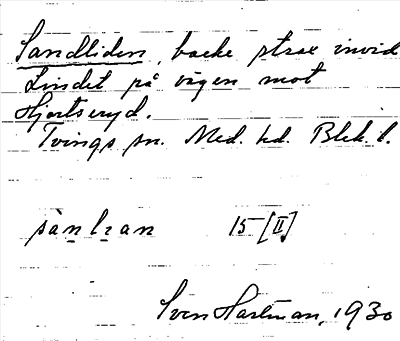 Sandliden, backe strax invid
Lindet på vägen mot
Hjortseryd.
Tvings sn. Med. hd. Blek. l.
sàn lian 15 [II]
Sven Hartman, 1930